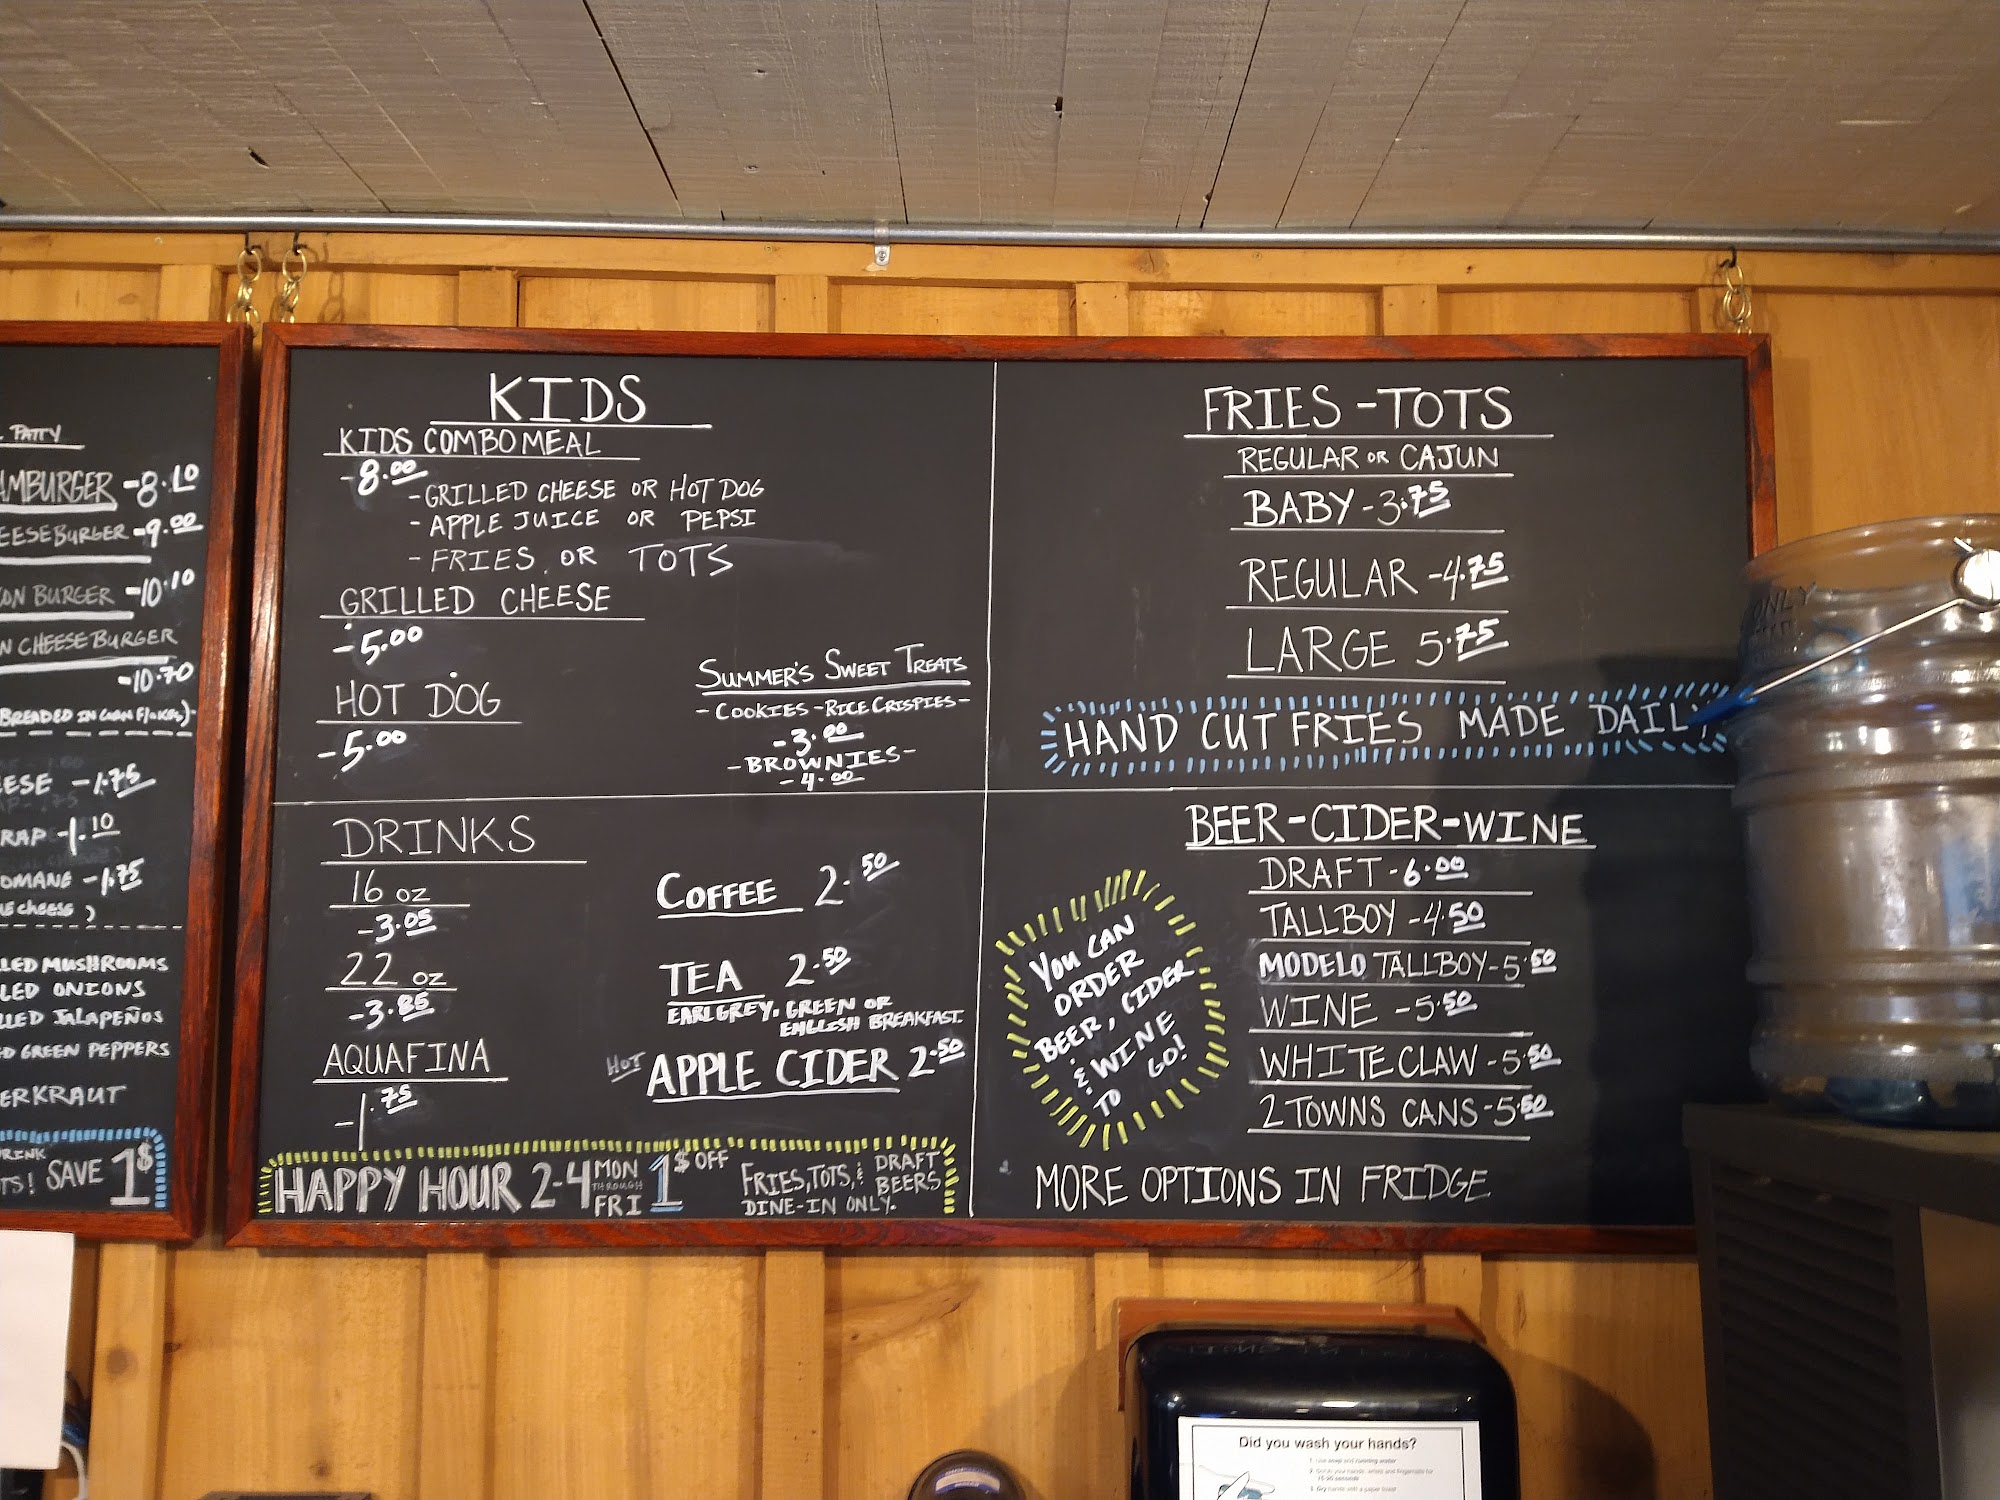 PATTY
AMBURGER -8.10
EESEBURGER -9.00
ON BURGER -10.10
N CHEESEBURGER
-10.70
(BREADED IN CORN FLAKES)
ESE -1.75
RAP -1.10
OMANE -1.75
cheese )
LED MUSHROOMS
LED ONIONS
LLED JALAPEÑOS
ED GREEN PEPPERS
ERKRAUT
RINK
TS! SAVE 1$
KIDS
KIDS COMBO MEAL
-8.00
-GRILLED CHEESE OR HOT DOG
- APPLE JUICE OR PEPSI
- FRIES OR TOTS
GRILLED CHEESE
-5.00
HOT DOG
-5.00
SUMMER'S SWEET TREATS
- COOKIES - RICE CRISPIES -
-3.00
- BROWNIES -
-4.00
FRIES - TOTS
REGULAR OR CAJUN
BABY - 3.75
REGULAR -4.75
LARGE 5.75
HAND CUT FRIES MADE DAILY
DRINKS
16 oz
-3.05
22 oz
-3.85
AQUAFINA
-1.75
COFFEE 2.50
TEA 2.50
EARL GREY, GREEN OR
ENGLISH BREAKFAST.
HOT APPLE CIDER 2.50
HAPPY HOUR 2-4 MON THROUGH FRI 1$ OFF FRIES, TOTS, & DRAFT BEERS
DINE-IN ONLY.
BEER-CIDER-WINE
DRAFT - 6.00
TALLBOY -4.50
MODELO TALLBOY-5.50
WINE -5.50
WHITE CLAW -5.50
2 TOWNS CANS -5.50
YOU CAN
ORDER
BEER, CIDER
& WINE
TO GO!
MORE OPTIONS IN FRIDGE
ONLY
Did you wash your hands?
1 Use soap and running water